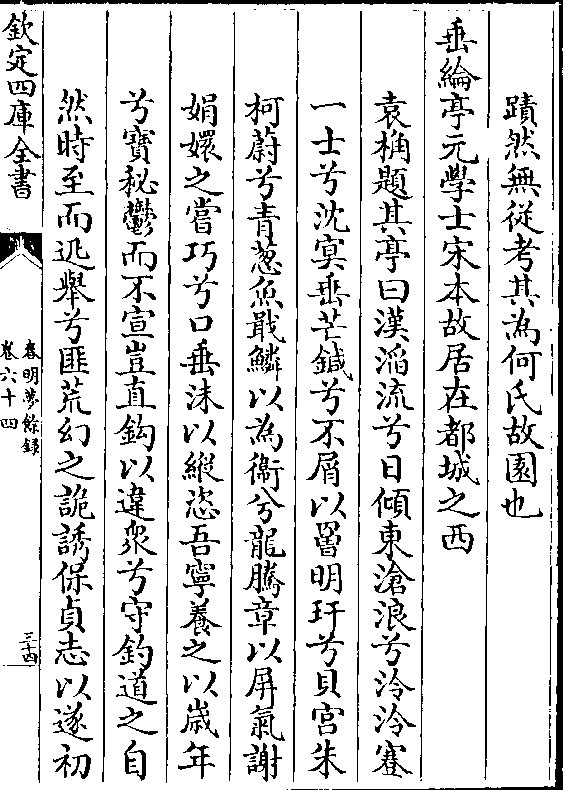 蹟然無從考其為何氏故園也
垂綸亭元學士宋本故居在都城之西
袁桷題其亭曰漢滔流兮日傾東滄浪兮泠泠蹇
一士兮沈冥垂芒鍼兮不屑以罾明玕兮貝宮朱
柯蔚兮青蔥魚戢鱗以為衞兮龍騰章以屏氣謝
娟嬛之嘗巧兮口垂沬以縱恣吾寧養之以嵗年
兮寶秘鬱而不宣豈直鈎以違衆兮守釣道之自
然時至而迅舉兮匪荒幻之詭誘保貞志以遂初
欽定四庫全書
春明夢餘録
卷六十四
三十四